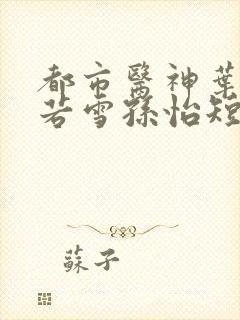 都市醫神葉
若雪孫怡短
蘇子